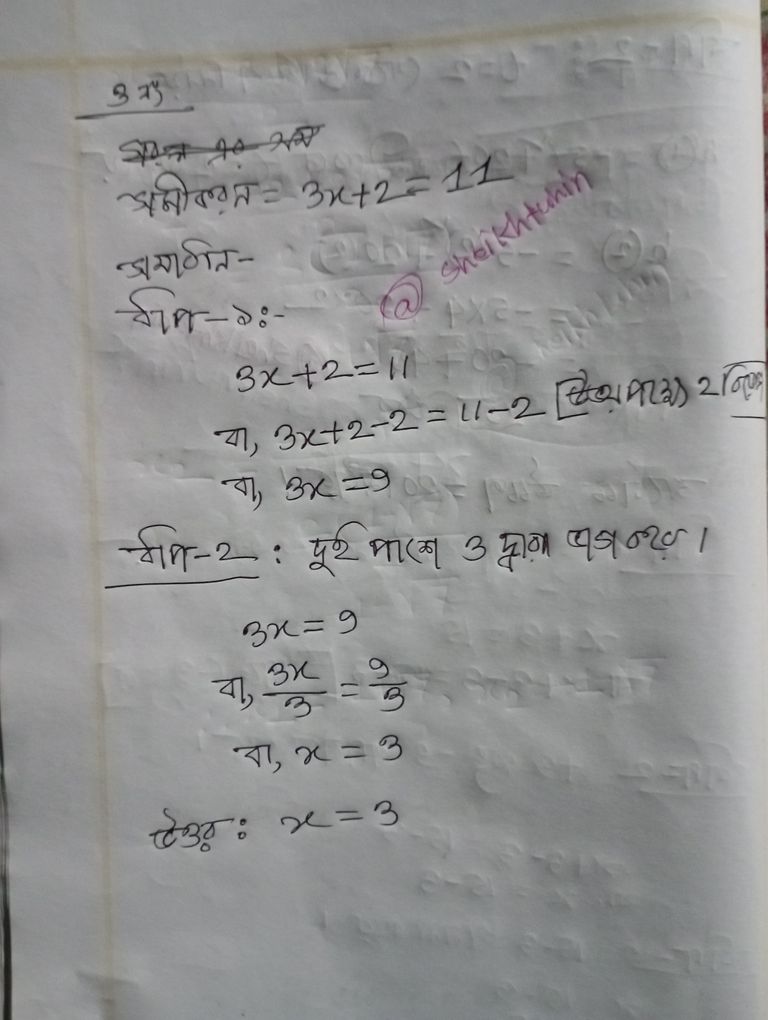 ৩ নং
সমীকরন = 3x+2=11
সমাধান-
@sheikhtuhin
ধাপ-১:-
3x+2=11
বা, 3x+2-2=11-2 [উভয় পাশে 2
বা, 3x=9
ধাপ-2: দুই পাশে 3 দ্বারা ভাগ করে।
3x=9
বা, 3x/3 = 9/3
বা, x=3
উত্তর: x=3